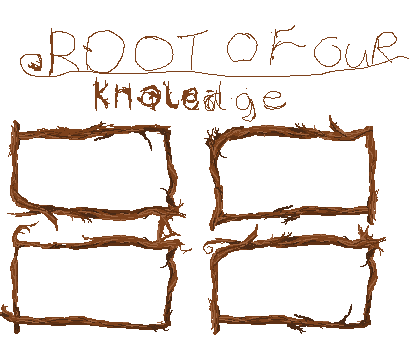 ROOT OF OUR
knoledge